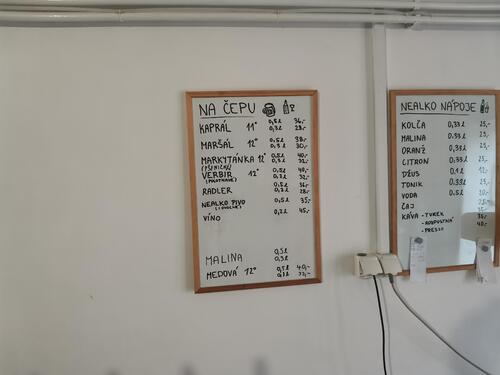 NA ČEPU
KAPRÁL 11° 0,5l 34,-
0,3l 28,-
MARŠÁL 12° 0,5l 38,-
0,3l 30,-
MARKYTÁNKA 12° 0,5l 40,-
(PŠENIČNÉ) 0,3l 32,-
VERBIR 12° 0,5l 40,-
0,2l 32,-
RADLER 0,5l 36,-
0,2l 28,-
NEALKO PIVO 0,5l 35,-
VÍNO 0,2l 45,-
MALINA 0,5l
0,3l
MEDOVÁ 12° 0,5l 40,-
NEALKO NÁPOJE
KOLČA 0,33l 25,-
MALINA 0.33l 25,-
ORANŽ 0,33l 25,-
CITRON 0,33l 25,-
DŽUS 0,1l 12,-
TONIK 0,33l 25,-
VODA 0,5l 20,-
ČAJ
KÁVA - TUREK
- ROZPUSTNÁ
- PRESSO 40,-